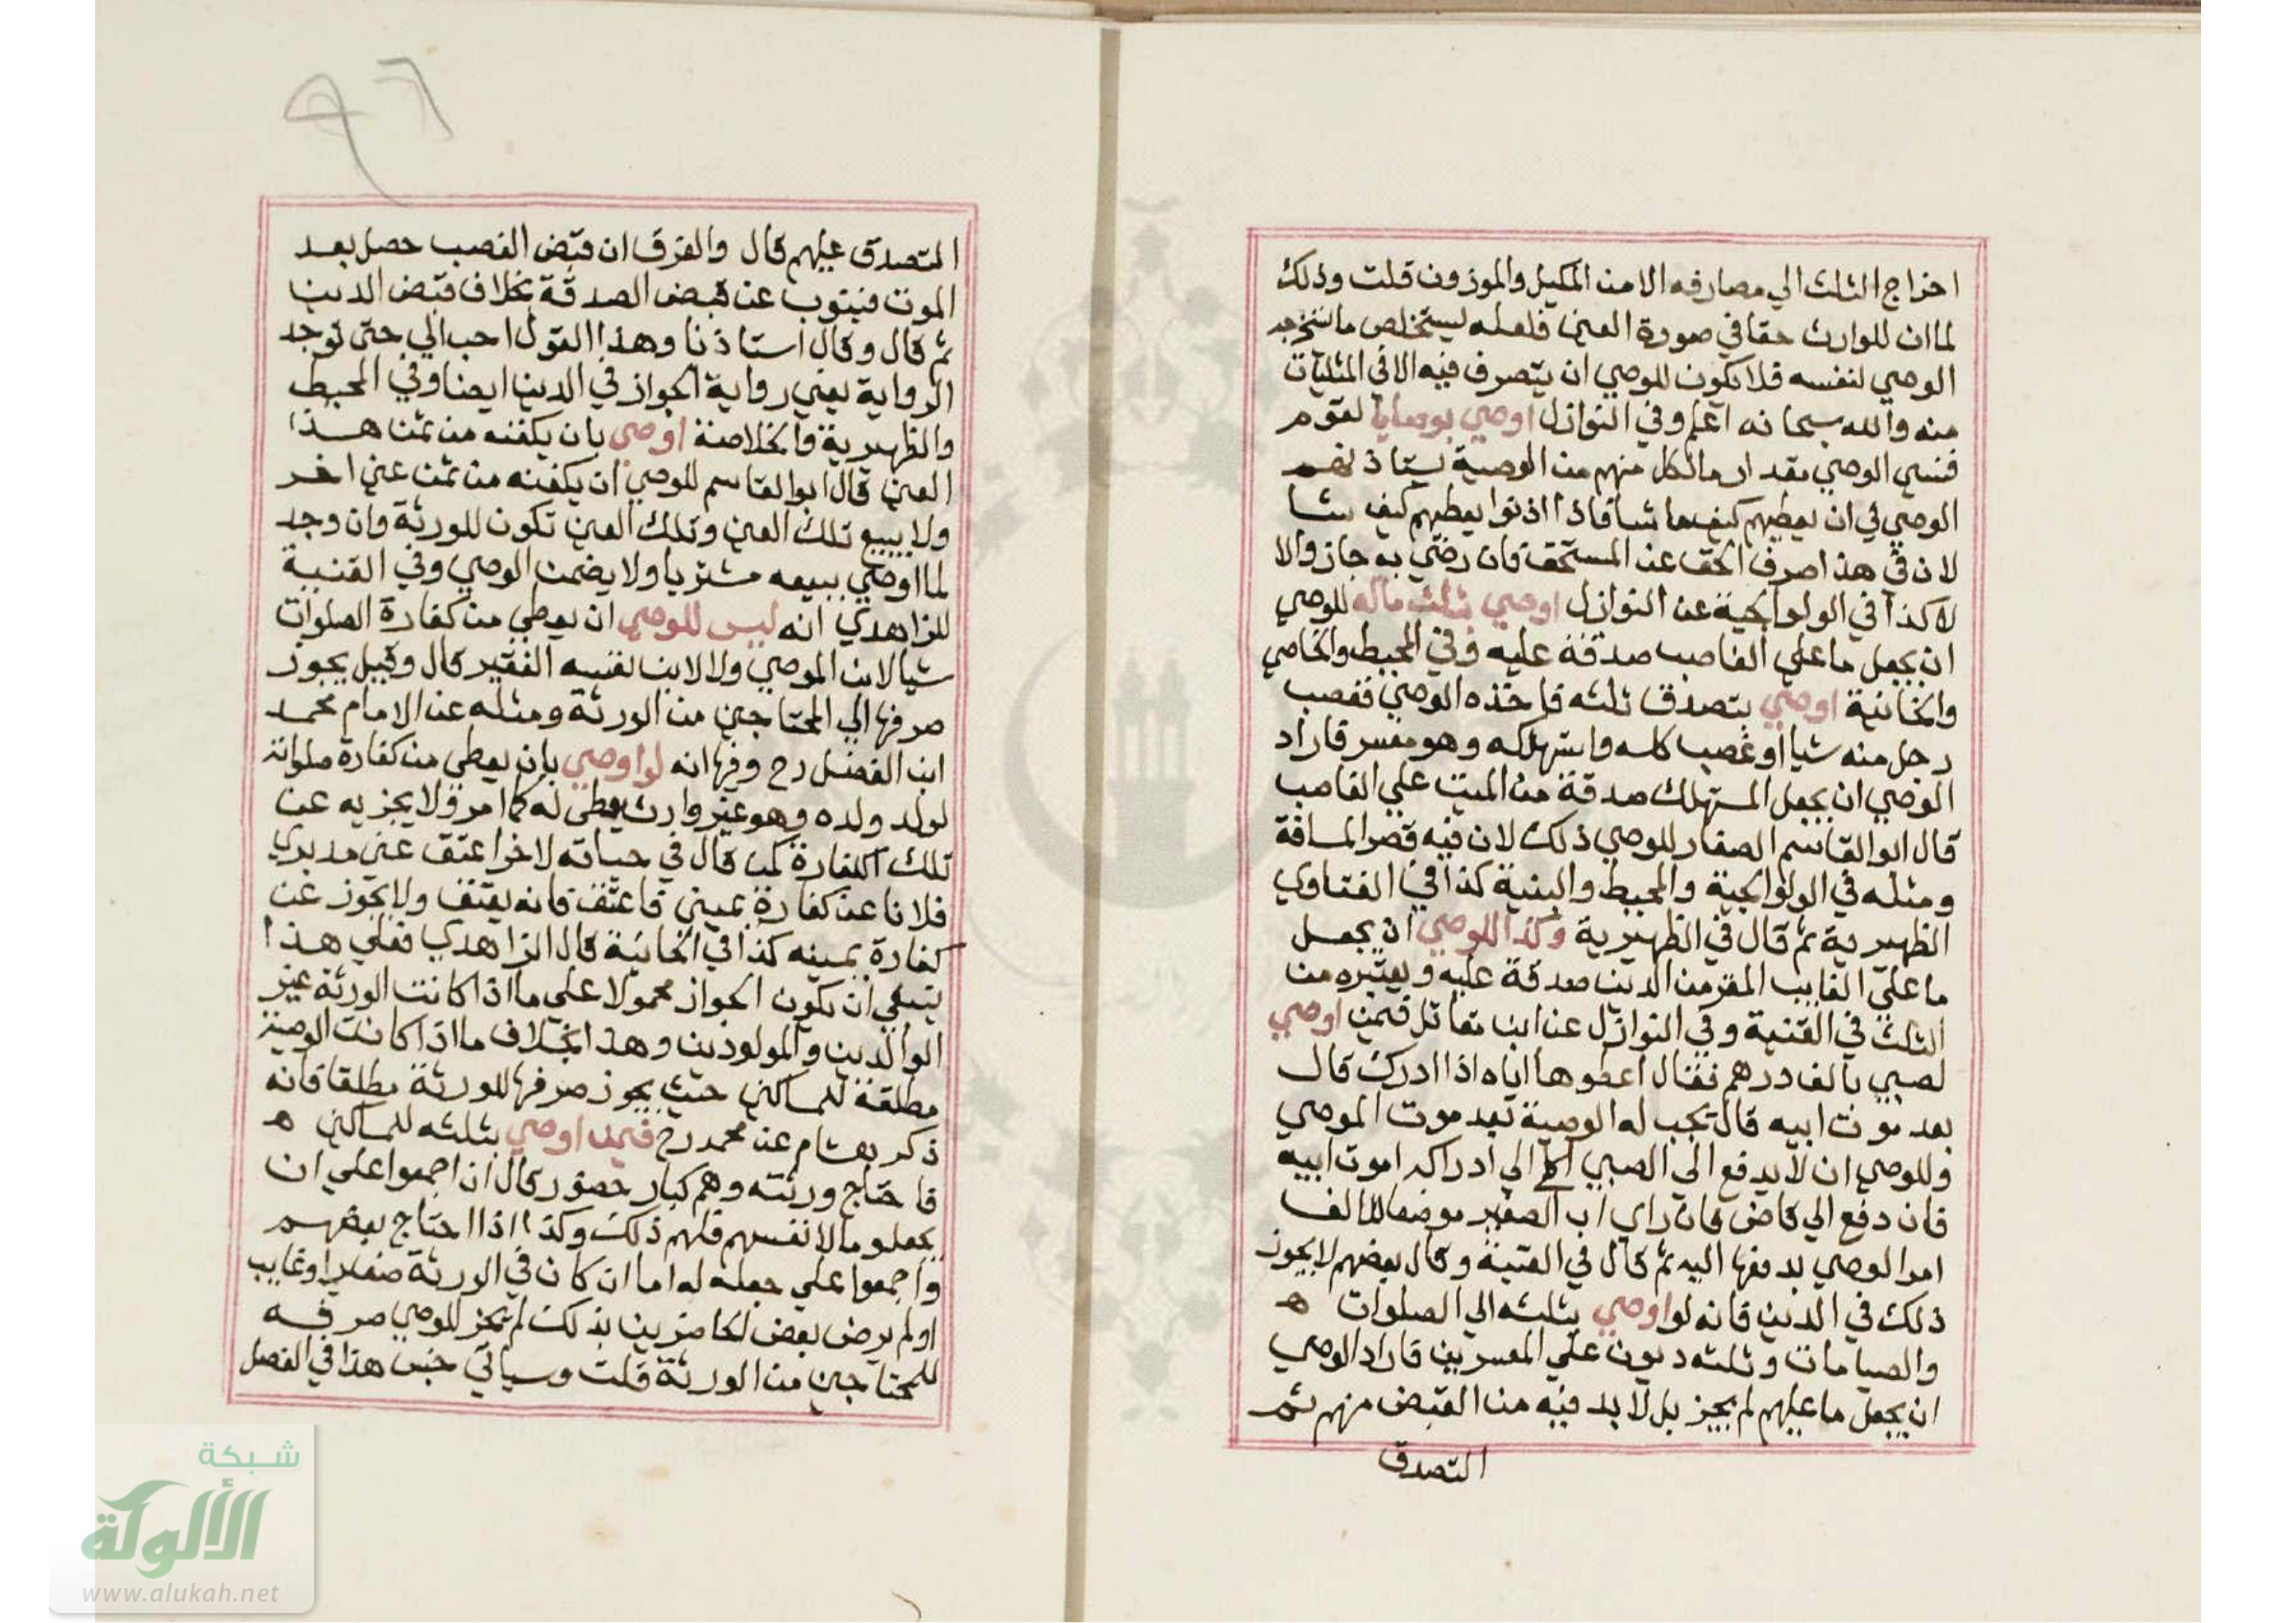 اخراج الثلث الي مصارفه الا من المكيل والموزون قلت وذلك
لما ان للوارث حقا في صورة العين فلعله يستخلص ما
الوصي لنفسه فلا يكون للوصي ان يتصرف فيه الا في المثليات
منه والله سبحانه اعلم وفي النوازل اوصي بوصايا لقوم
فنسي الوصي مقدار مالكل منهم من الوصية
الوصي في ان يعطيهم كيف ما شا فاذا اذنوا يعطيهم كيف شا
لان في هذا صرف الحق عن المستحق فان رضي به جاز والا
لا كذا في الولوالجية عن النوازل اوصي بثلث ماله للوصي
ان يجعل ما علي الغاصب صدقة عليه وفي المحيط والخاصي
والخانية اوصي بتصدق ثلثه فاخذه الوصي فغصب
رجل منه شيا او غصب كله واستهلكه وهو معسر فاراد
الوصي ان يجعل المستهلك صدقة من الميت علي الغاصب
قال ابو القاسم الصفار للوصي ذلك لان فيه قصر المسافة
ومثله في الولوالجية والمحيط والبنية كذا في الفتاوي
الظهيرية ثم قال في الظهيرية وكذا للوصي ان يجعل
ما علي الغايب المقر من الدين صدقة عليه ويعتبره من
الثلث في القنية وفي النوازل عن ابن مقاتل فيمن اوصي
لصبي بالف درهم فقال اعطوها اياه اذا ادرك قال
بعد موت ابيه قال تجب له الوصية بعد موت الموصي
وللوصي ان لا يدفع الي الصبي الي ادراكه او موت ابيه
فان دفع الي قاض فان راي اب الصغير موضعا للالف
امر الوصي بدفعها اليه ثم قال في القنية وقال بعضهم لا يجوز
ذلك في الدين فانه لو اوصي بثلثه الي الصلوات ه
والصيامات وثلثه ديون علي المعسرين فاراد الوصي
ان يجعل ما عليهم لم يجز بل لا بد فيه من القبض منهم ثم
التصدق
٩٦
المتصدق عليهم قال والفرق ان قبض الغصب حصل بعد
الموت فينوب عن قبض الصدقة بخلاف قبض الدين
ثم قال وقال استاذنا وهذا القول احب الي حتي توجد
الرواية يعني رواية الجواز في الدين ايضا وفي المحيط
والظهيرية والخلاصة اوصي بان يكفنه من ثمن هذا
العين قال ابو القاسم للوصي ان يكفنه من ثمن عين اخر
ولا يبيع تلك العين وتلك العين تكون للورثة وان وجد
لما اوصي ببيعه مشتريا ولا يضمن الوصي وفي القنية
للزاهدي انه ليس للوصي ان يعطي من كفارة الصلوات
شيا لابن الموصي ولا لابن نفسه الفقير قال وقيل يجوز
صرفها الي المحتاجين من الورثة ومثله عن الامام محمد
ابن الفضل رح وفيها انه لو اوصي بان يعطي من كفارة صلواته
لولد ولده وهو غير وارث يعطي له كما امر ولا يجزيه عن
تلك الكفارة كمن قال في حياته لاخر اعتق عني مدبري
فلانا عن كفارة يميني فاعتقه فانه يعتق ولا يجوز عن
كفارة يمينه كذا في الخانية قال الزاهدي فعلي هذا
ينبغي ان يكون الجواز محمولا علي ما اذا كانت الورثة غير
الوالدين والمولودين وهذا بخلاف ما اذا كانت الوصية
مطلقة للمساكين حيث يجوز صرفها للورثة مطلقا فانه
ذكر هشام عن محمد رح فيمن اوصي بثلثه للمساكين ه
فاحتاج ورثته وهم كبار حضور قال ان اجمعوا علي ان
يجعلوه مالا نفسهم فلهم ذلك وكذا اذا احتاج بعضهم
واجمعوا علي جعله له اما ان كان في الورثة صغيرا وغايب
او لم يرض بعض الحاضرين بذلك لم يجز للوصي صرفه
للمحتاجين من الورثة قلت وسياتي جنس هذا في الفصل
شبكة
الألوكة
www.alukah.net